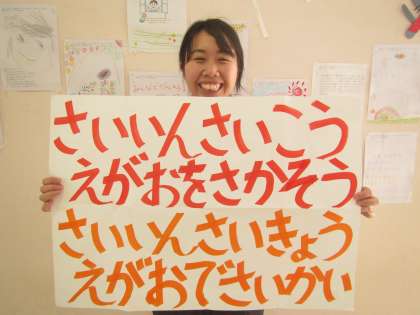 さいいんさいこう
えがおをさかそう
さいいんさいきょう
えがおでさいかい